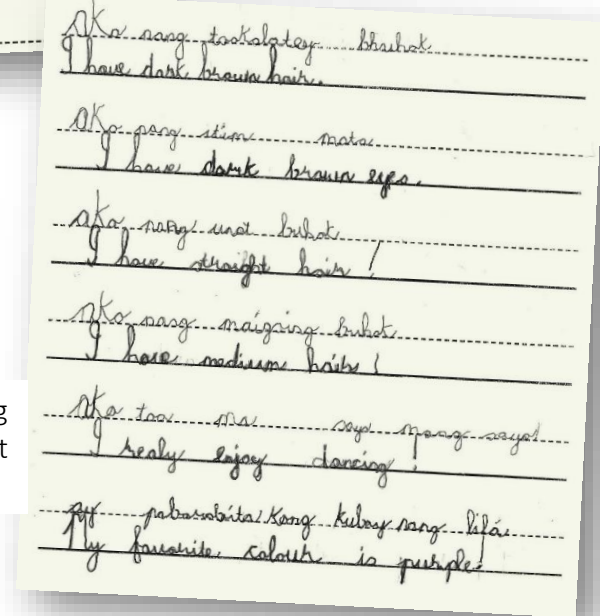 Ako nang tsokolatey bhuhok
I have dark brown hair.
Ako nang itim mata
I have dark brown eyes.
Ako nang unat buhok
I have straight hair!
Ako nang maigsing buhok
I have medium hair!
Ako too ma saya nang sayaw
g
I realy enjoy dancing!
t
ay kong kulay nang lila
My favorite colour is purple!